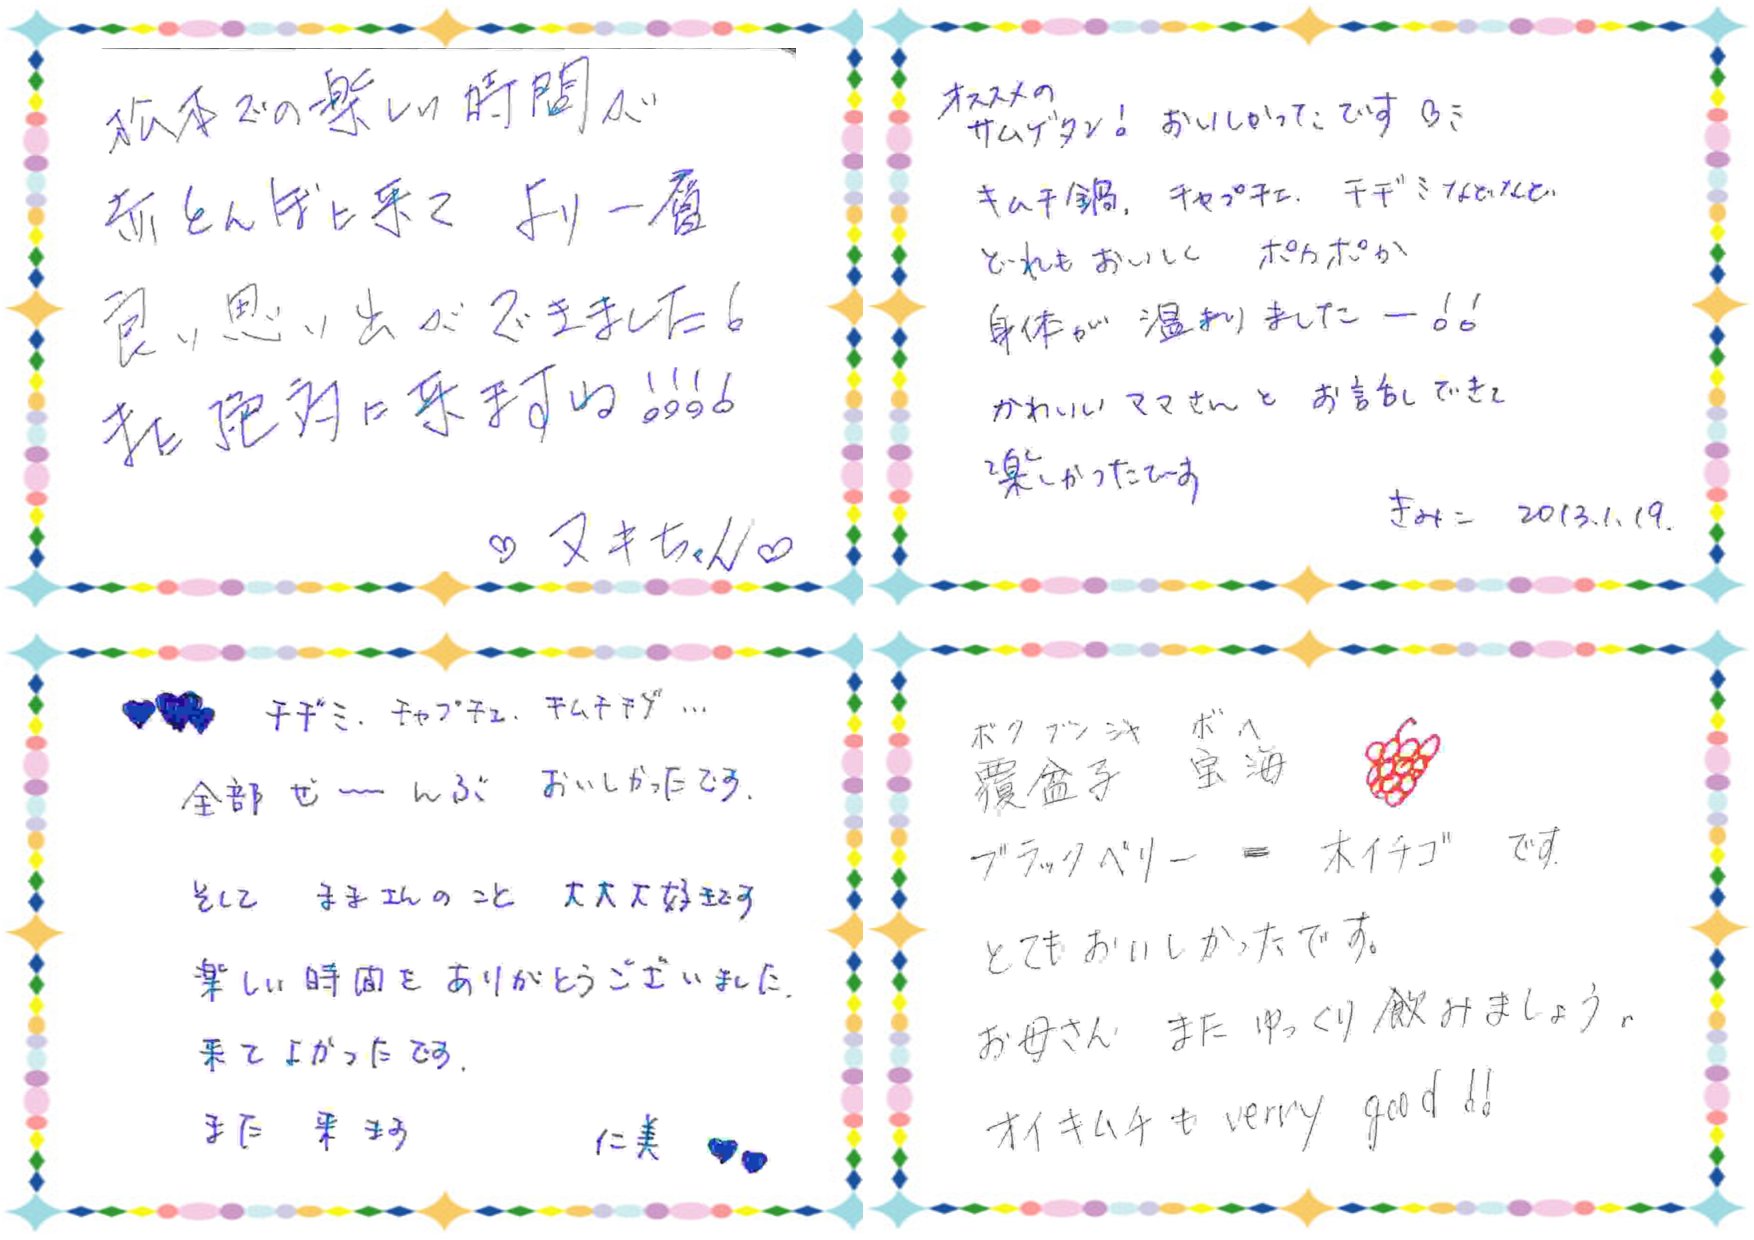 松本での楽しい時間が
赤とんぼに来て より一層
良い思い出ができました!
また絶対に来ますね!!!!
♡ヌキちゃん♡
オススメの
サムゲタン! おいしかったです
キムチ鍋、チャプチェ、チヂミなどなど
どれもおいしく ポカポカ
身体が 温まりましたー!!
かわいいママさんと お話しできて
楽しかったでーす
きみこ 2013.1.19.
チヂミ、チャプチェ、キムチチゲ…
全部 ぜ〜んぶ おいしかったです。
そして ままさんのこと 大大大好きです
楽しい時間を ありがとうございました。
来てよかったです。
また 来ます
仁美
ボクブンジャ ボヘ
覆盆子 宝海
ブラックベリー = 木イチゴ です。
とてもおいしかったです。
お母さん またゆっくり飲みましょう。
オイキムチも verry good!!